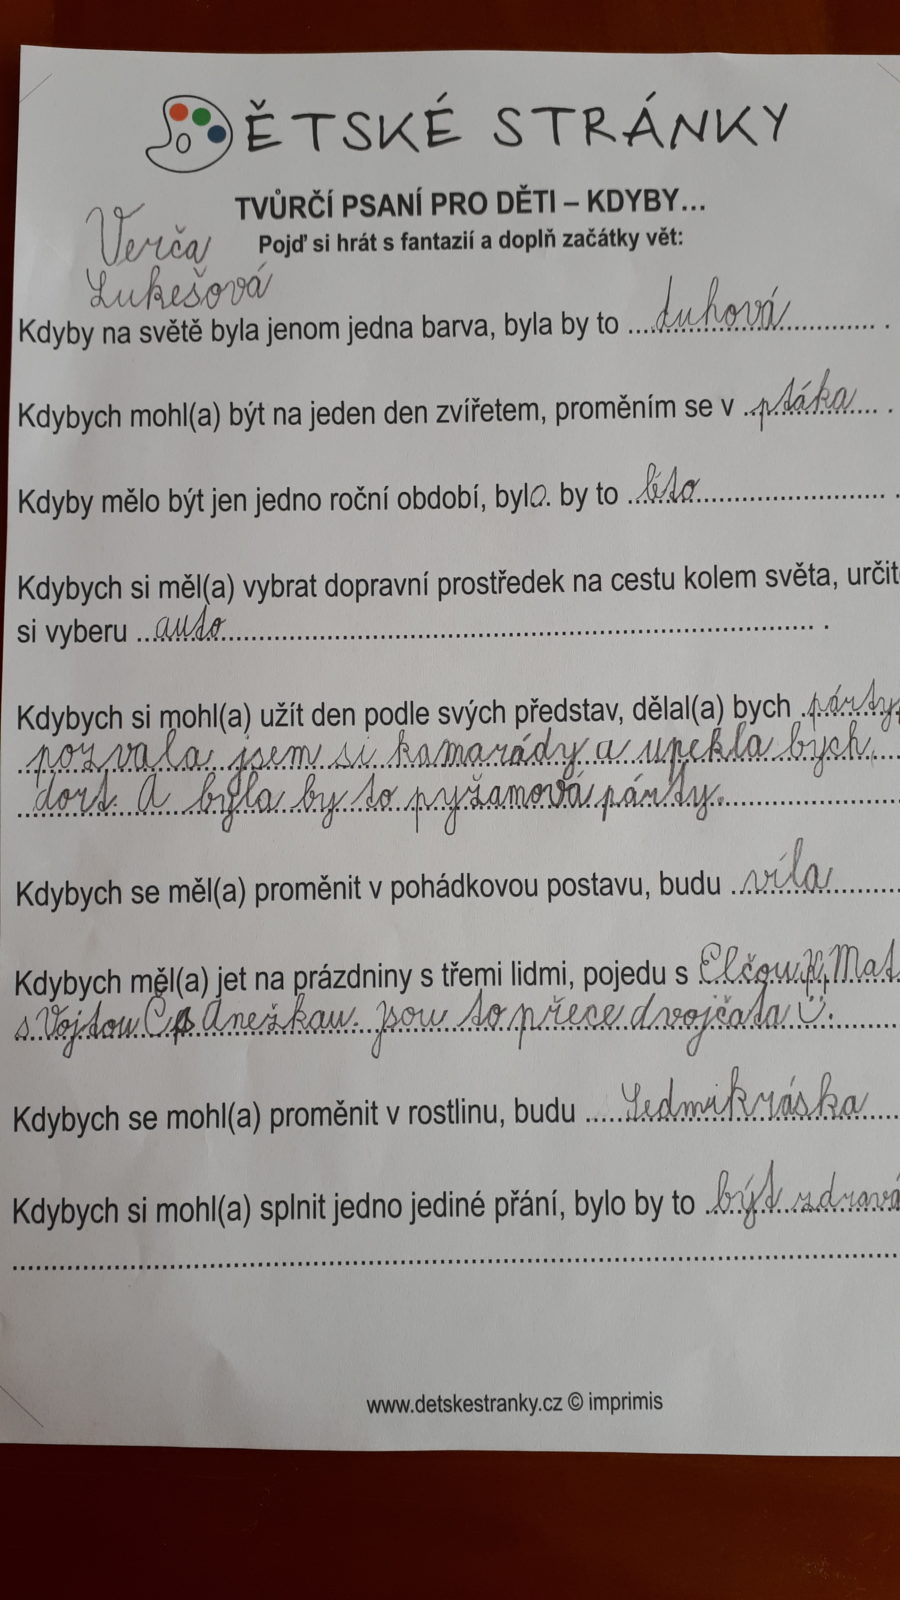 DĚTSKÉ STRÁNKY
TVŮRČÍ PSANÍ PRO DĚTI – KDYBY...
Verča
Pojď si hrát s fantazií a doplň začátky vět:
Lukešová
Kdyby na světě byla jenom jedna barva, byla by to duhová .
Kdybych mohl(a) být na jeden den zvířetem, proměním se v ptáka .
Kdyby mělo být jen jedno roční období, bylo by to léto .
Kdybych si měl(a) vybrat dopravní prostředek na cestu kolem světa, určit
si vyberu auto .
Kdybych si mohl(a) užít den podle svých představ, dělal(a) bych párty,
pozvala jsem si kamarády a upekla bych
dort. A byla by to pyžamová párty.
Kdybych se měl(a) proměnit v pohádkovou postavu, budu víla
Kdybych měl(a) jet na prázdniny s třemi lidmi, pojedu s Elčou Mat
s Vojtou Č. Anežkau. jsou to přece dvojčata
Kdybych se mohl(a) proměnit v rostlinu, budu Sedmikráska
Kdybych si mohl(a) splnit jedno jediné přání, bylo by to být zdravá
www.detskestranky.cz © imprimis